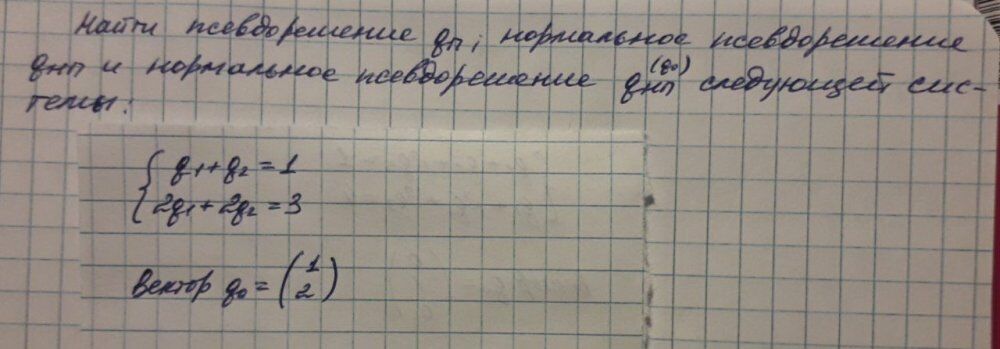 Найти псевдорешение qп, нормальное псевдорешение
qнп и нормальное псевдорешение qнп^(q0) следующей сис-
темы:
{ q1+q2=1
2q1+2q2=3
Вектор q0 = (1
2)